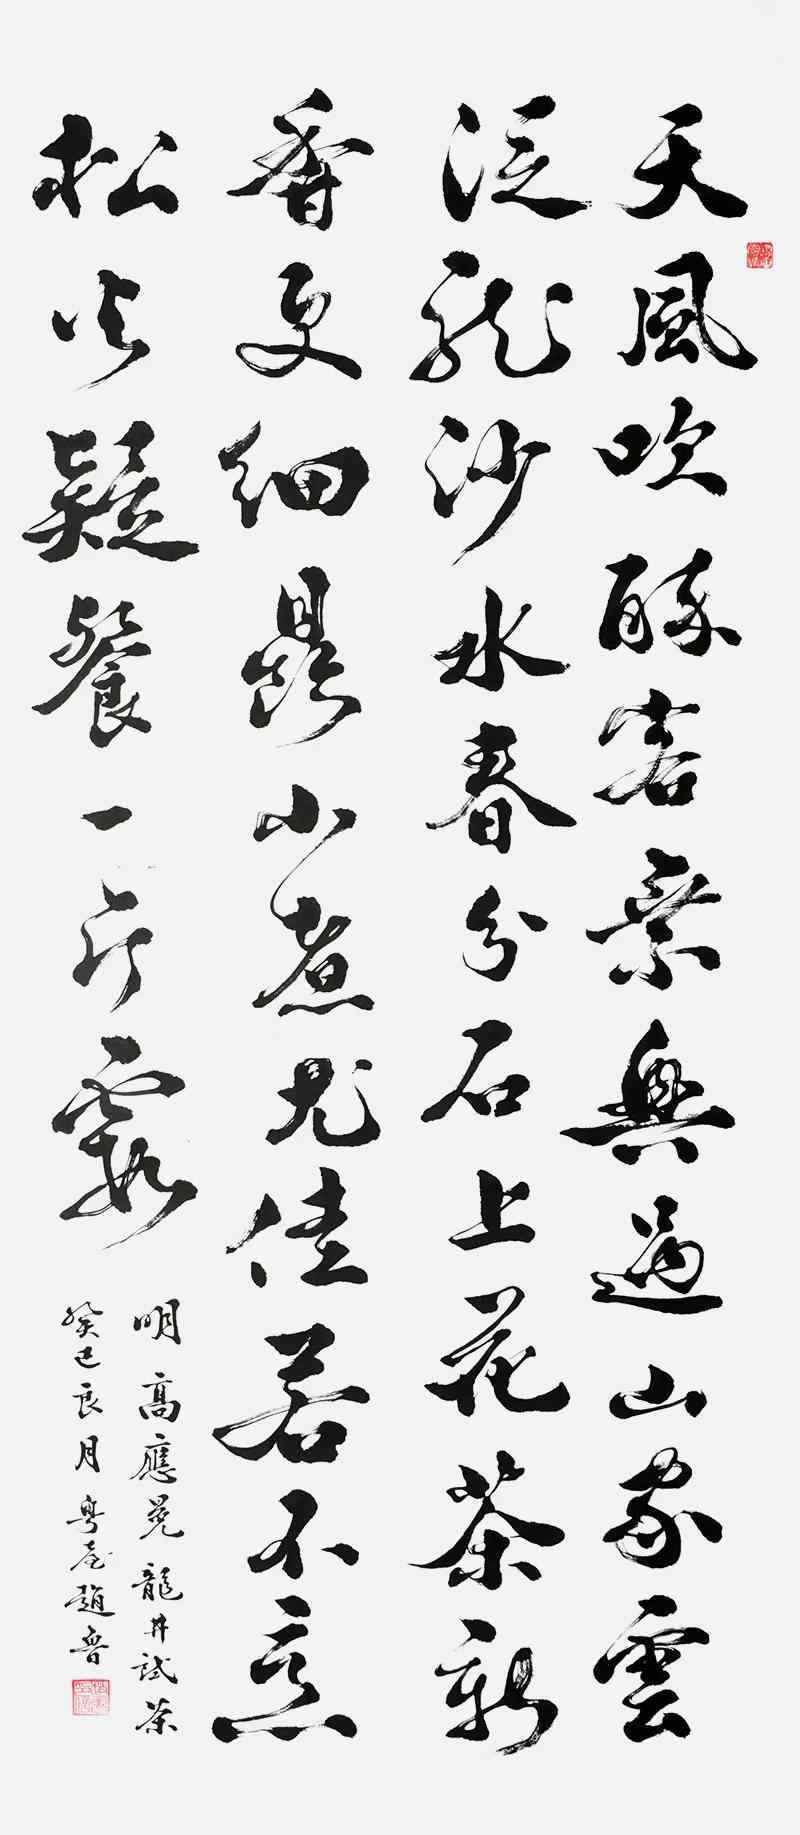 天風吹醉客乘興過山家雲
泛龍沙水春分石上花茶新
香更細鼎小煮尤佳若不烹
松火疑餐一片霞
明高應冕龍井試茶
癸巳良月粵台趙魯